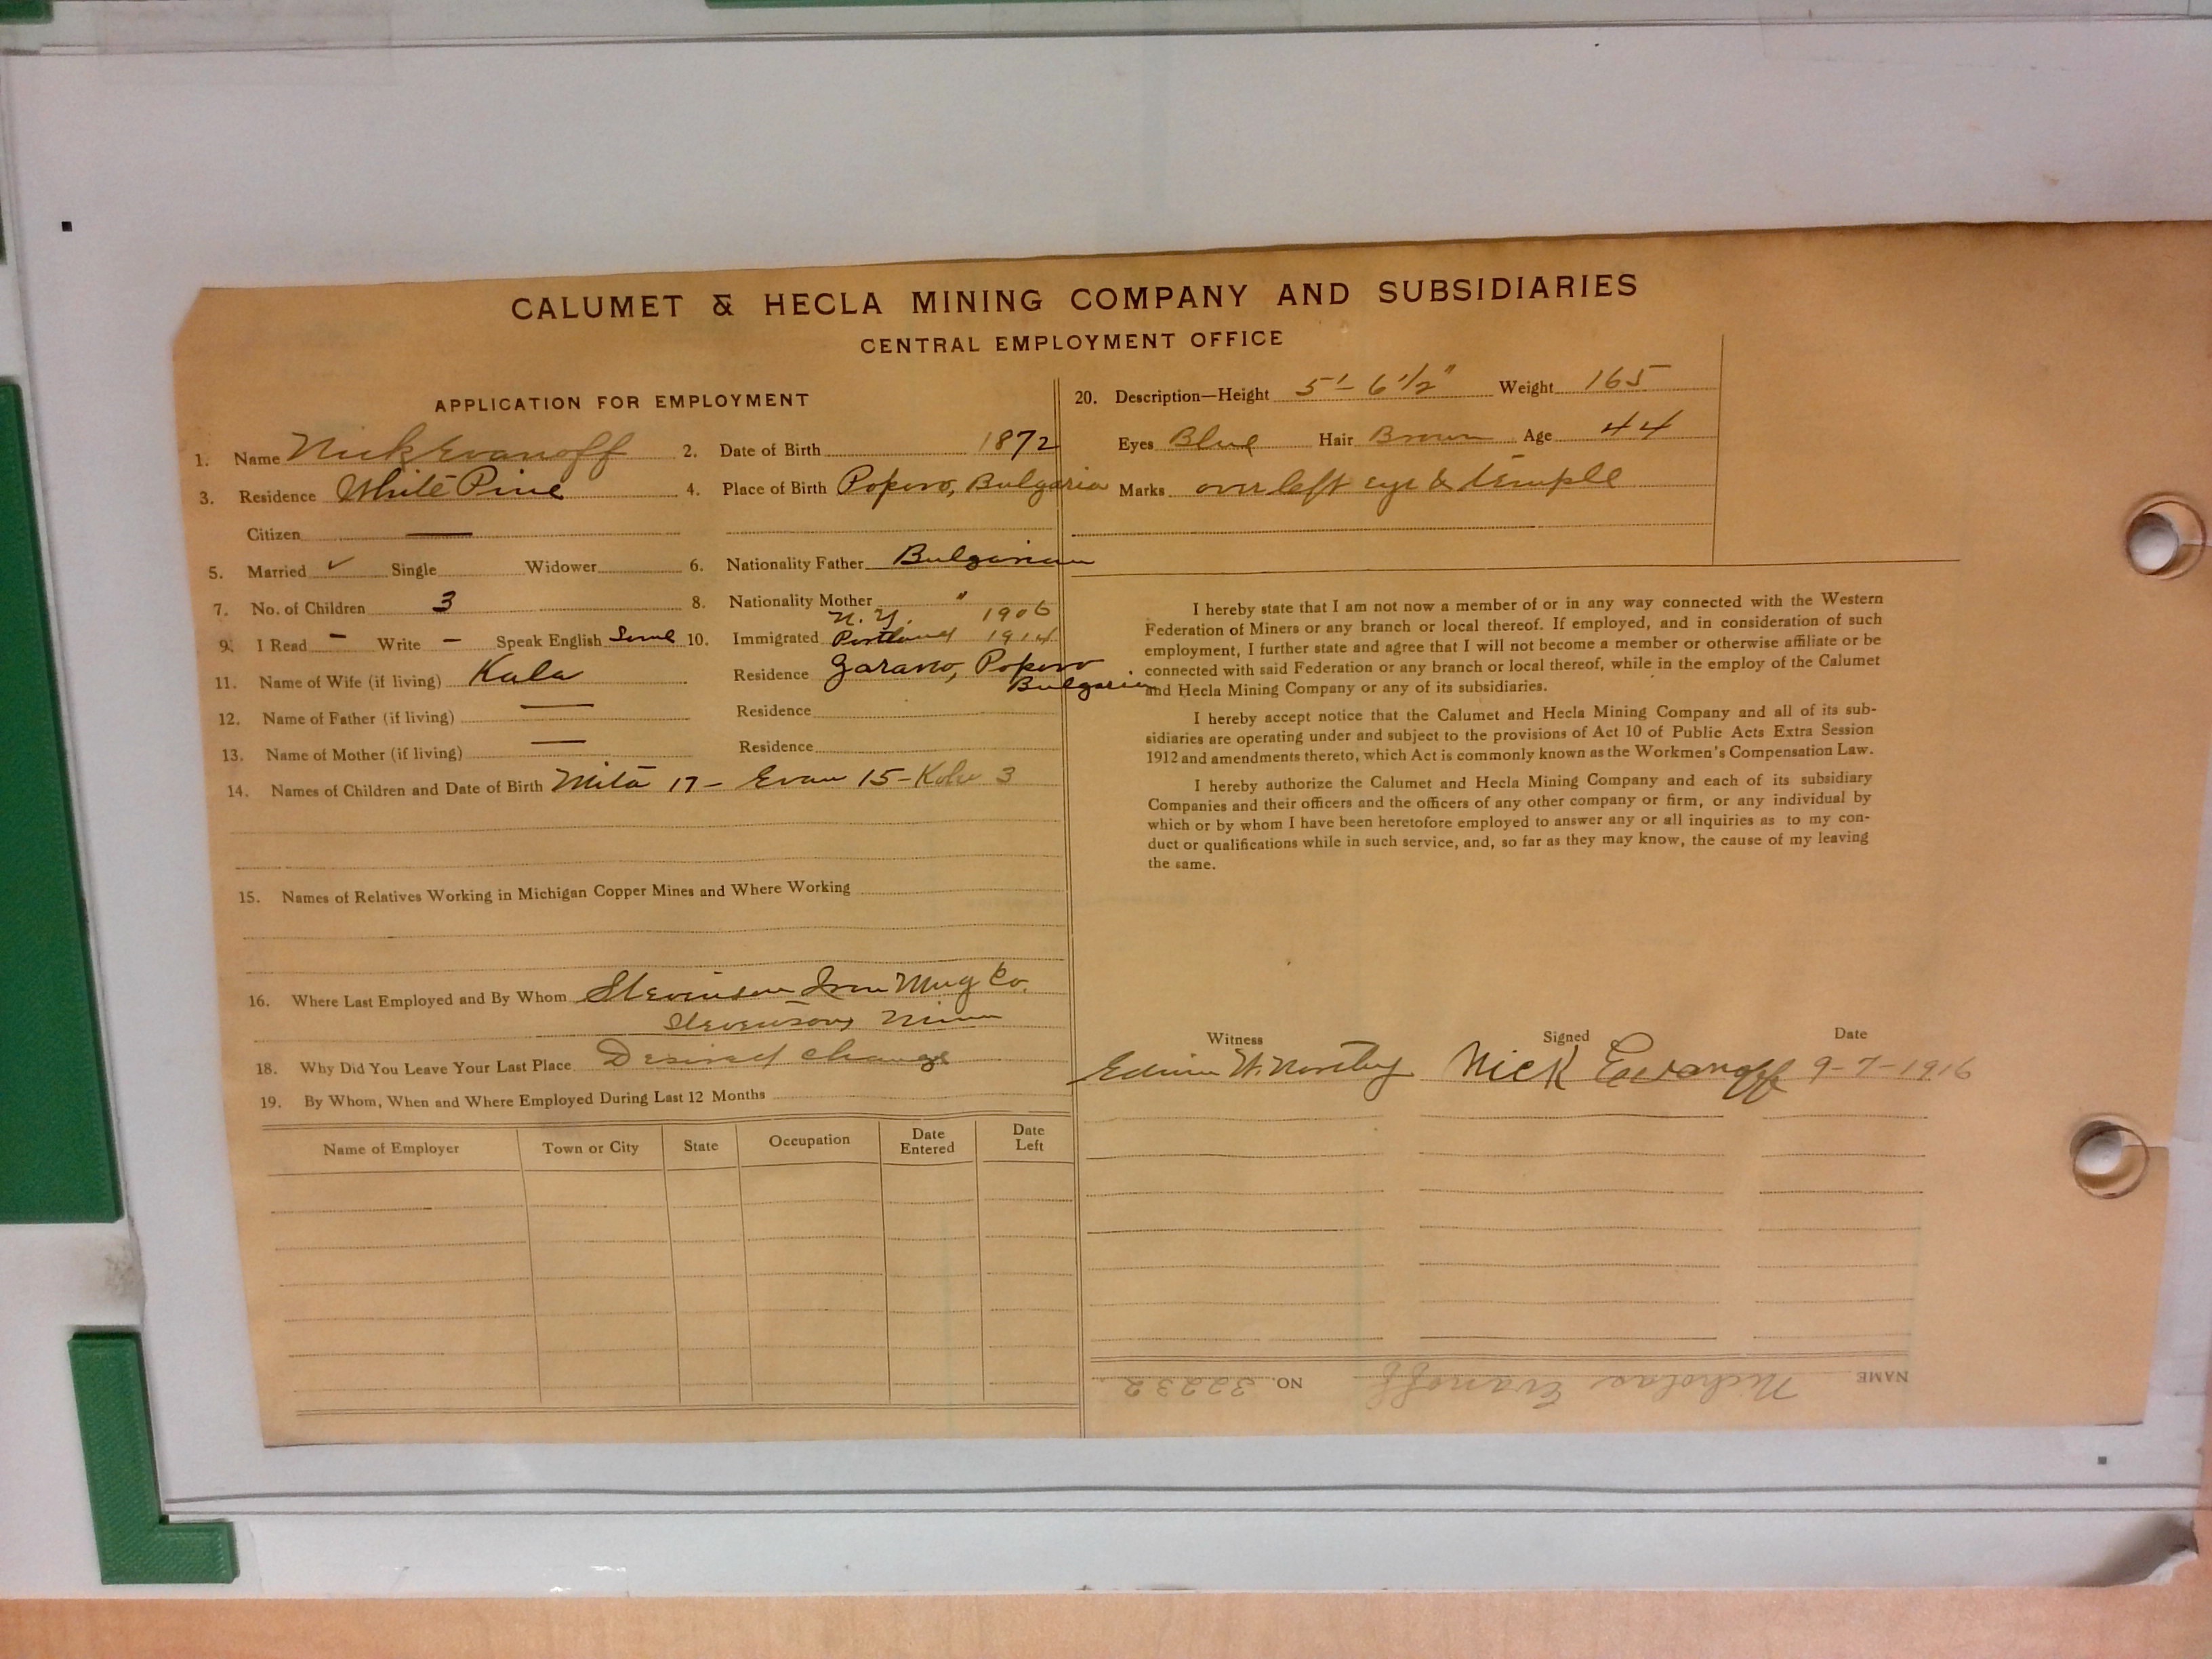 CALUMET & HECLA MINING COMPANY AND SUBSIDIARIES
CENTRAL EMPLOYMENT OFFICE
APPLICATION FOR EMPLOYMENT
1. Name Nick Evanoff 2. Date of Birth 1872
3. Residence White Pine 4. Place of Birth Popovo, Bulgaria
Citizen —
5. Married ✓ Single Widower 6. Nationality Father Bulgarian
7. No. of Children 3 8. Nationality Mother "
N.Y. 1906
9. I Read - Write - Speak English Some 10. Immigrated Portland 1914
11. Name of Wife (if living) Kala Residence Garavo, Popovo
Bulgaria
12. Name of Father (if living) — Residence
13. Name of Mother (if living) — Residence
14. Names of Children and Date of Birth Mita 17 - Evan 15 - 3
15. Names of Relatives Working in Michigan Copper Mines and Where Working
16. Where Last Employed and By Whom Stevenson Iron Mng Co.
Stevenson, Minn
18. Why Did You Leave Your Last Place Desired change
19. By Whom, When and Where Employed During Last 12 Months
Name of Employer Town or City State Occupation Date Entered Date Left
20. Description—Height 5'- 6 1/2" Weight 165
Eyes Blue Hair Brown Age 44
Marks over left eye & temple
I hereby state that I am not now a member of or in any way connected with the Western
Federation of Miners or any branch or local thereof. If employed, and in consideration of such
employment, I further state and agree that I will not become a member or otherwise affiliate or be
connected with said Federation or any branch or local thereof, while in the employ of the Calumet
and Hecla Mining Company or any of its subsidiaries.
I hereby accept notice that the Calumet and Hecla Mining Company and all of its sub-
sidiaries are operating under and subject to the provisions of Act 10 of Public Acts Extra Session
1912 and amendments thereto, which Act is commonly known as the Workmen's Compensation Law.
I hereby authorize the Calumet and Hecla Mining Company and each of its subsidiary
Companies and their officers and the officers of any other company or firm, or any individual by
which or by whom I have been heretofore employed to answer any or all inquiries as to my con-
duct or qualifications while in such service, and, so far as they may know, the cause of my leaving
the same.
Witness Signed Date
Edwin W. Nick Evanoff 9-7-1916
NAME Nicholas Evanoff NO. 32232